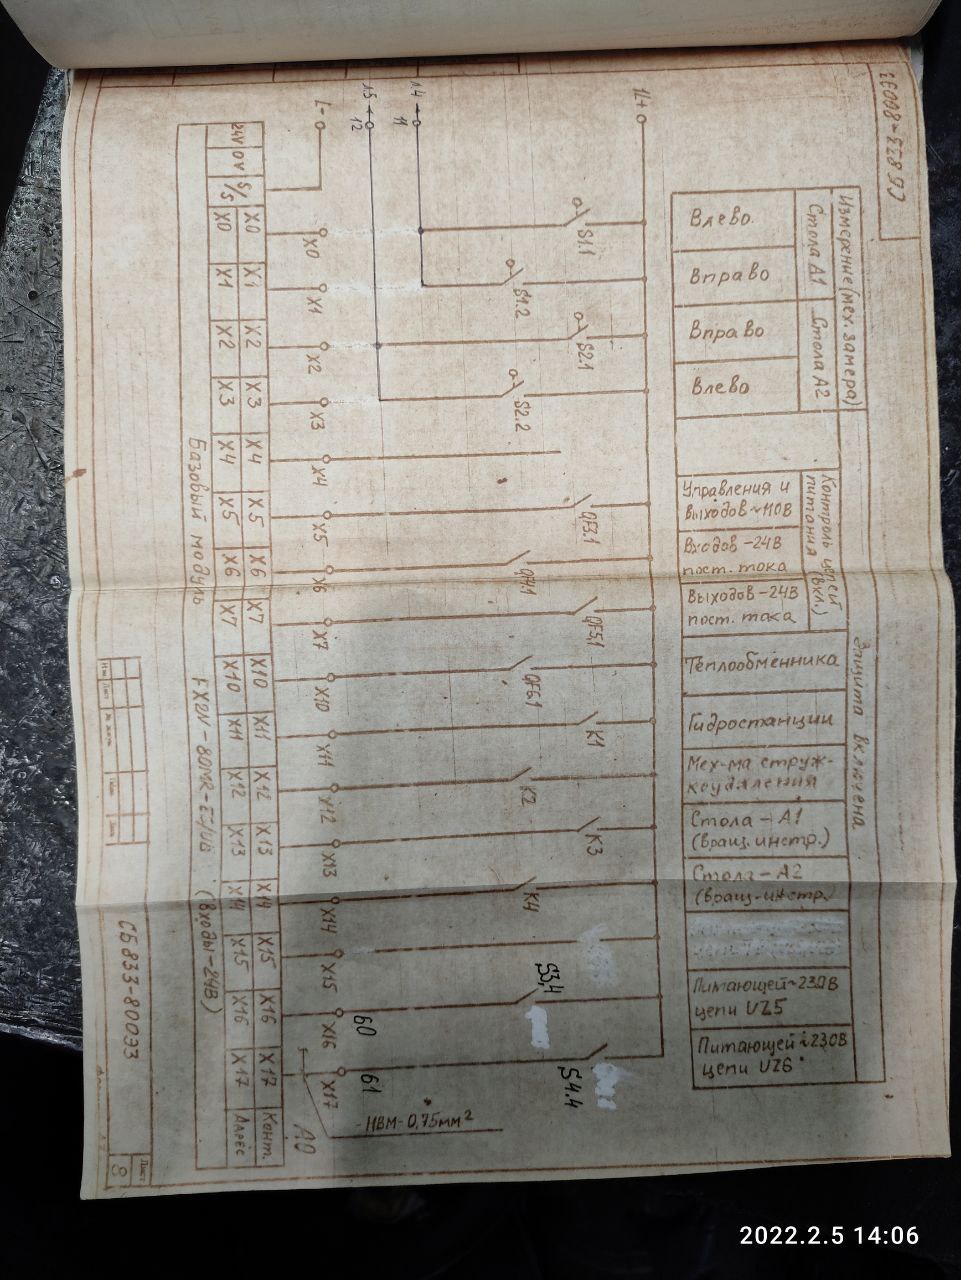 СБ833-80033
Измерение (мех. замера)
Стола А1
Стола А2
Влево
Вправо
Вправо
Влево
Контроль цепей
питания (вкл.)
Управления и
выходов ~110В
Входов -24В
пост. тока
Выходов -24В
пост. тока
Защита включена
Теплообменника
Гидростанции
Мех-ма струж-
коудаления
Стола - А1
(вращ. инстр.)
Стола - А2
(вращ. инстр.)
Питающей ~230В
цепи UZ5
Питающей ~230В
цепи UZ6
1L+
S1.1
S1.2
S2.1
S2.2
QF4.1
QF5.1
QF6.1
K1
K2
K3
K4
S3,4
S4.4
14
11
15
12
L-
60
61
X0 X1 X2 X3 X4 X5 X6 X7 X10 X11 X12 X13 X14 X15 X16 X17
НВМ-0,75мм²
S/S X0 X1 X2 X3 X4 X5 X6 X7 X10 X11 X12 X13 X14 X15 X16 X17 Конт.
24V 0V S/S X0 X1 X2 X3 X4 X5 X6 X7 X10 X11 X12 X13 X14 X15 X16 X17 Адрес
Базовый модуль (Входы-24В)
СБ833-80033
Лист
8
2022.2.5 14:06